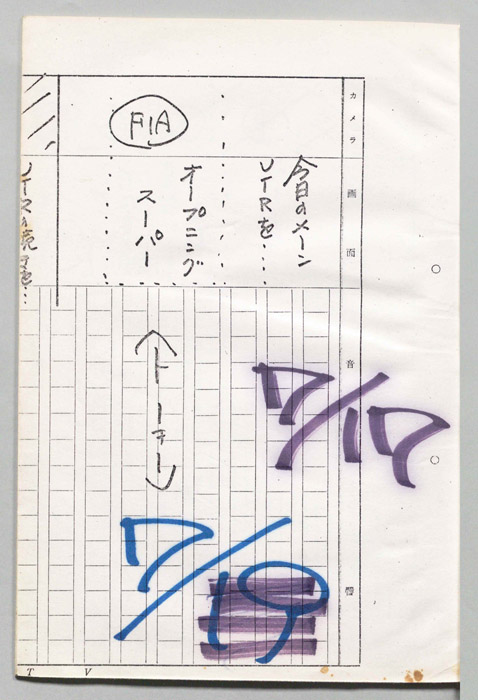 カメラ
画面
音響
今日のメーン
VTRを…
オープニング
スーパー
FIA
トーキー
7/17
7/19
T V